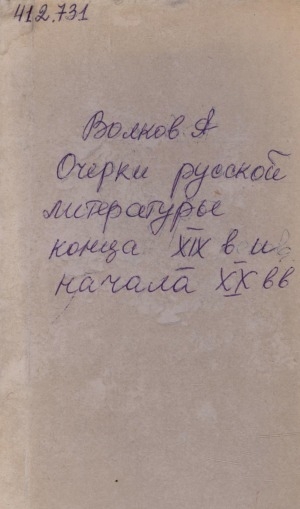 412.731
Волков А
Очерки русской
литературы
конца XIX в и
начала XX вв